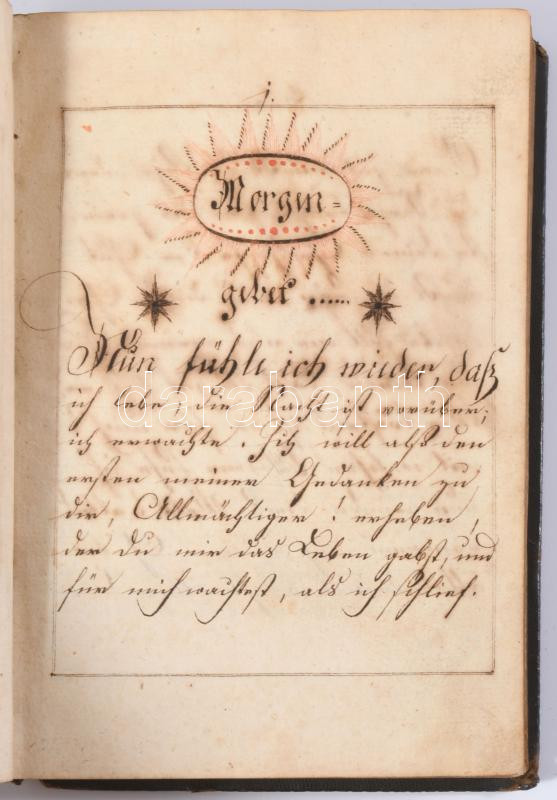 1.
Morgen=
gebet ......
Nun fühle ich wieder, daß
ich lebe; die Nacht ist vorüber;
ich erwachte. Itz will also den
ersten meiner Gedanken zu
dir, Allmächtiger! erheben,
der du mir das Leben gabst, und
für mich wachtest, als ich schlief.
darabanth